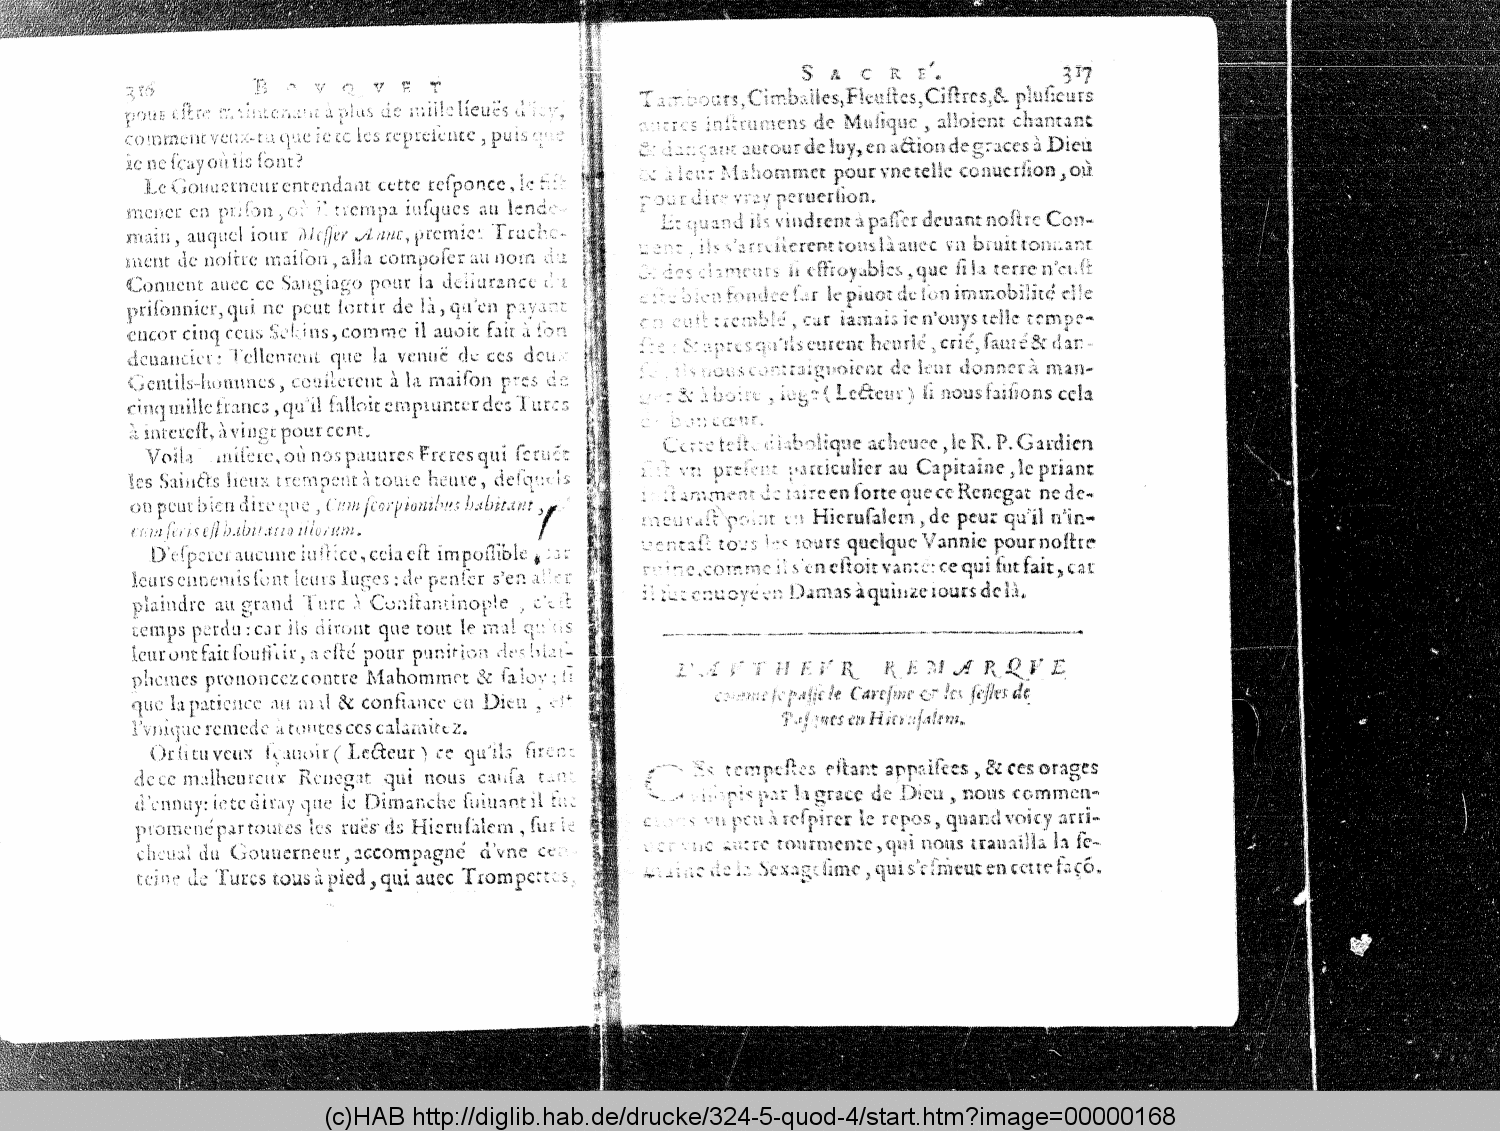 316 BOVQVET
pour estre maintenant à plus de mille lieuës d'icy,
comment veux-tu que ie te les represente, puis que
ie ne sçay où ils sont?
Le Gouuerneur entendant cette responce, le fist
mener en prison, où il trempa iusques au lende-
main, auquel iour Messer Aune, premier Truche-
ment de nostre maison, alla composer au nom du
Conuent auec ce Sangiago pour la deliurance du
prisonnier, qui ne peut sortir de là, qu'en payant
encor cinq cens Sekins, comme il auoit fait à son
deuancier: Tellement que la venuë de ces deux
Gentils-hommes, cousterent à la maison pres de
cinq mille francs, qu'il falloit emprunter des Turcs
à interest, à vingt pour cent.
Voila misere, où nos pauures Freres qui seruët
les Saincts lieux trempent à toute heure, desquels
on peut bien dire que, Cum scorpionibus habitant,
cum feris est habitatio illorum.
D'esperer aucune iustice, cela est impossible, car
leurs ennemis sont leurs Iuges: de penser s'en aller
plaindre au grand Turc à Constantinople, c'est
temps perdu: car ils diront que tout le mal qu'ils
leur ont fait souffrir, a esté pour punition des blas-
phemes prononcez contre Mahommet & sa loy: si
que la patience au mal & confiance en Dieu, est
l'vnique remede à toutes ces calamitez.
Or si tu veux sçauoir (Lecteur) ce qu'ils firent
de ce malheureux Renegat qui nous causa tant
d'ennuy: ie te diray que le Dimanche suiuant il fut
promené par toutes les ruës ds Hierusalem, sur le
cheual du Gouuerneur, accompagné d'vne cen-
teine de Turcs tous à pied, qui auec Trompettes,
SACRÉ. 317
Tambours, Cimballes, Fleustes, Cistres, & plusieurs
autres instrumens de Musique, alloient chantant
& dançant autour de luy, en action de graces à Dieu
& à leur Mahommet pour vne telle conuersion, où
pour dire vray peruersion.
Et quand ils vindrent à passer deuant nostre Con-
uent, ils s'arresterent tous là auec vn bruit tonnant
& des clameurs si effroyables, que si la terre n'eust
esté bien fondée sur le piuot de son immobilité elle
en eust tremblé, car iamais ie n'ouys telle tempe-
ste: & apres qu'ils eurent heurlé, crié, sauté & dan-
sé, ils nous contraignoient de leur donner à man-
ger & à boire, iuge (Lecteur) si nous faisions cela
de bon cœur.
Cette feste diabolique acheuee, le R. P. Gardien
fist vn present particulier au Capitaine, le priant
instamment de faire en sorte que ce Renegat ne de-
meurast point en Hierusalem, de peur qu'il n'in-
uentast tous les iours quelque Vannie pour nostre
ruine, comme il s'en estoit vanté: ce qui fut fait, car
il fut enuoyé en Damas à quinze iours de là.
L'AVTHEVR REMARQVE
comme se passe le Caresme & les festes de
Pasques en Hierusalem.
CEs tempestes estant appaisees, & ces orages
assoupis par la grace de Dieu, nous commen-
cions vn peu à respirer le repos, quand voicy arri-
uer vne autre tourmente, qui nous trauailla la se-
maine de la Sexagesime, qui s'esmeut en cette façõ.
(c)HAB http://diglib.hab.de/drucke/324-5-quod-4/start.htm?image=00000168